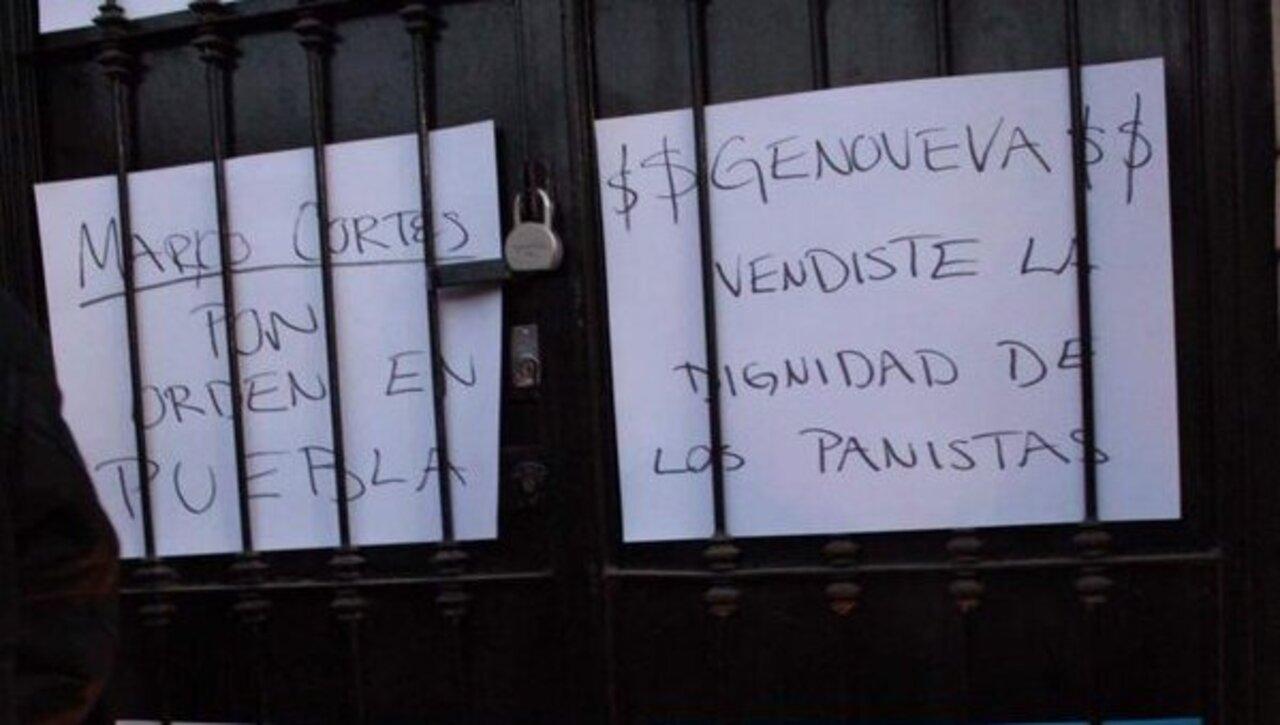 MARCO CORTES
PON
ORDEN EN
PUEBLA
$$ GENOVEVA $$
VENDISTE LA
DIGNIDAD DE
LOS PANISTAS